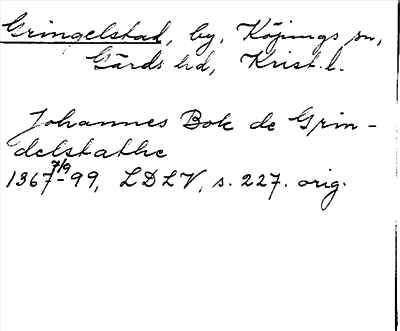 Gringelstad, by, Köpings sn,
Gärds hd, Krist. l.
Johannes Bok de Grin-
delstathe
1367-99, LDLV, s. 227. orig.
7/9